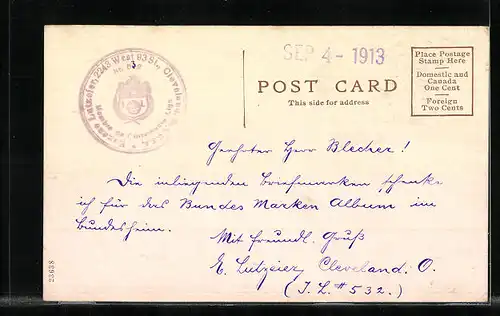 SEP 4- 1913
2243 West 93 St., Cleveland,
POST CARD
This side for address
Place Postage
Stamp Here
Domestic and
Canada
One Cent
Foreign
Two Cents
Geehrter Herr Blecher!
Die inliegenden Briefmarken schenke
ich für das Bundes Marken Album im
Bundesheim.
Mit freundl. Gruß
E. Lutzeier, Cleveland. O.
(I. L. # 532.)
23638